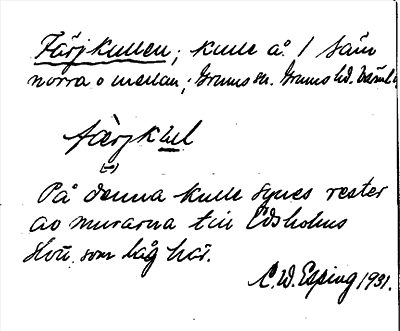 Färjkullen; kulle å / Säm
norra o mellan; Grums sn. Grums hd. Värml
færjkul
(-)
På denna kulle synes rester
av murarna till Edsholms
slott som låg här.
C. W. Esping 1931.